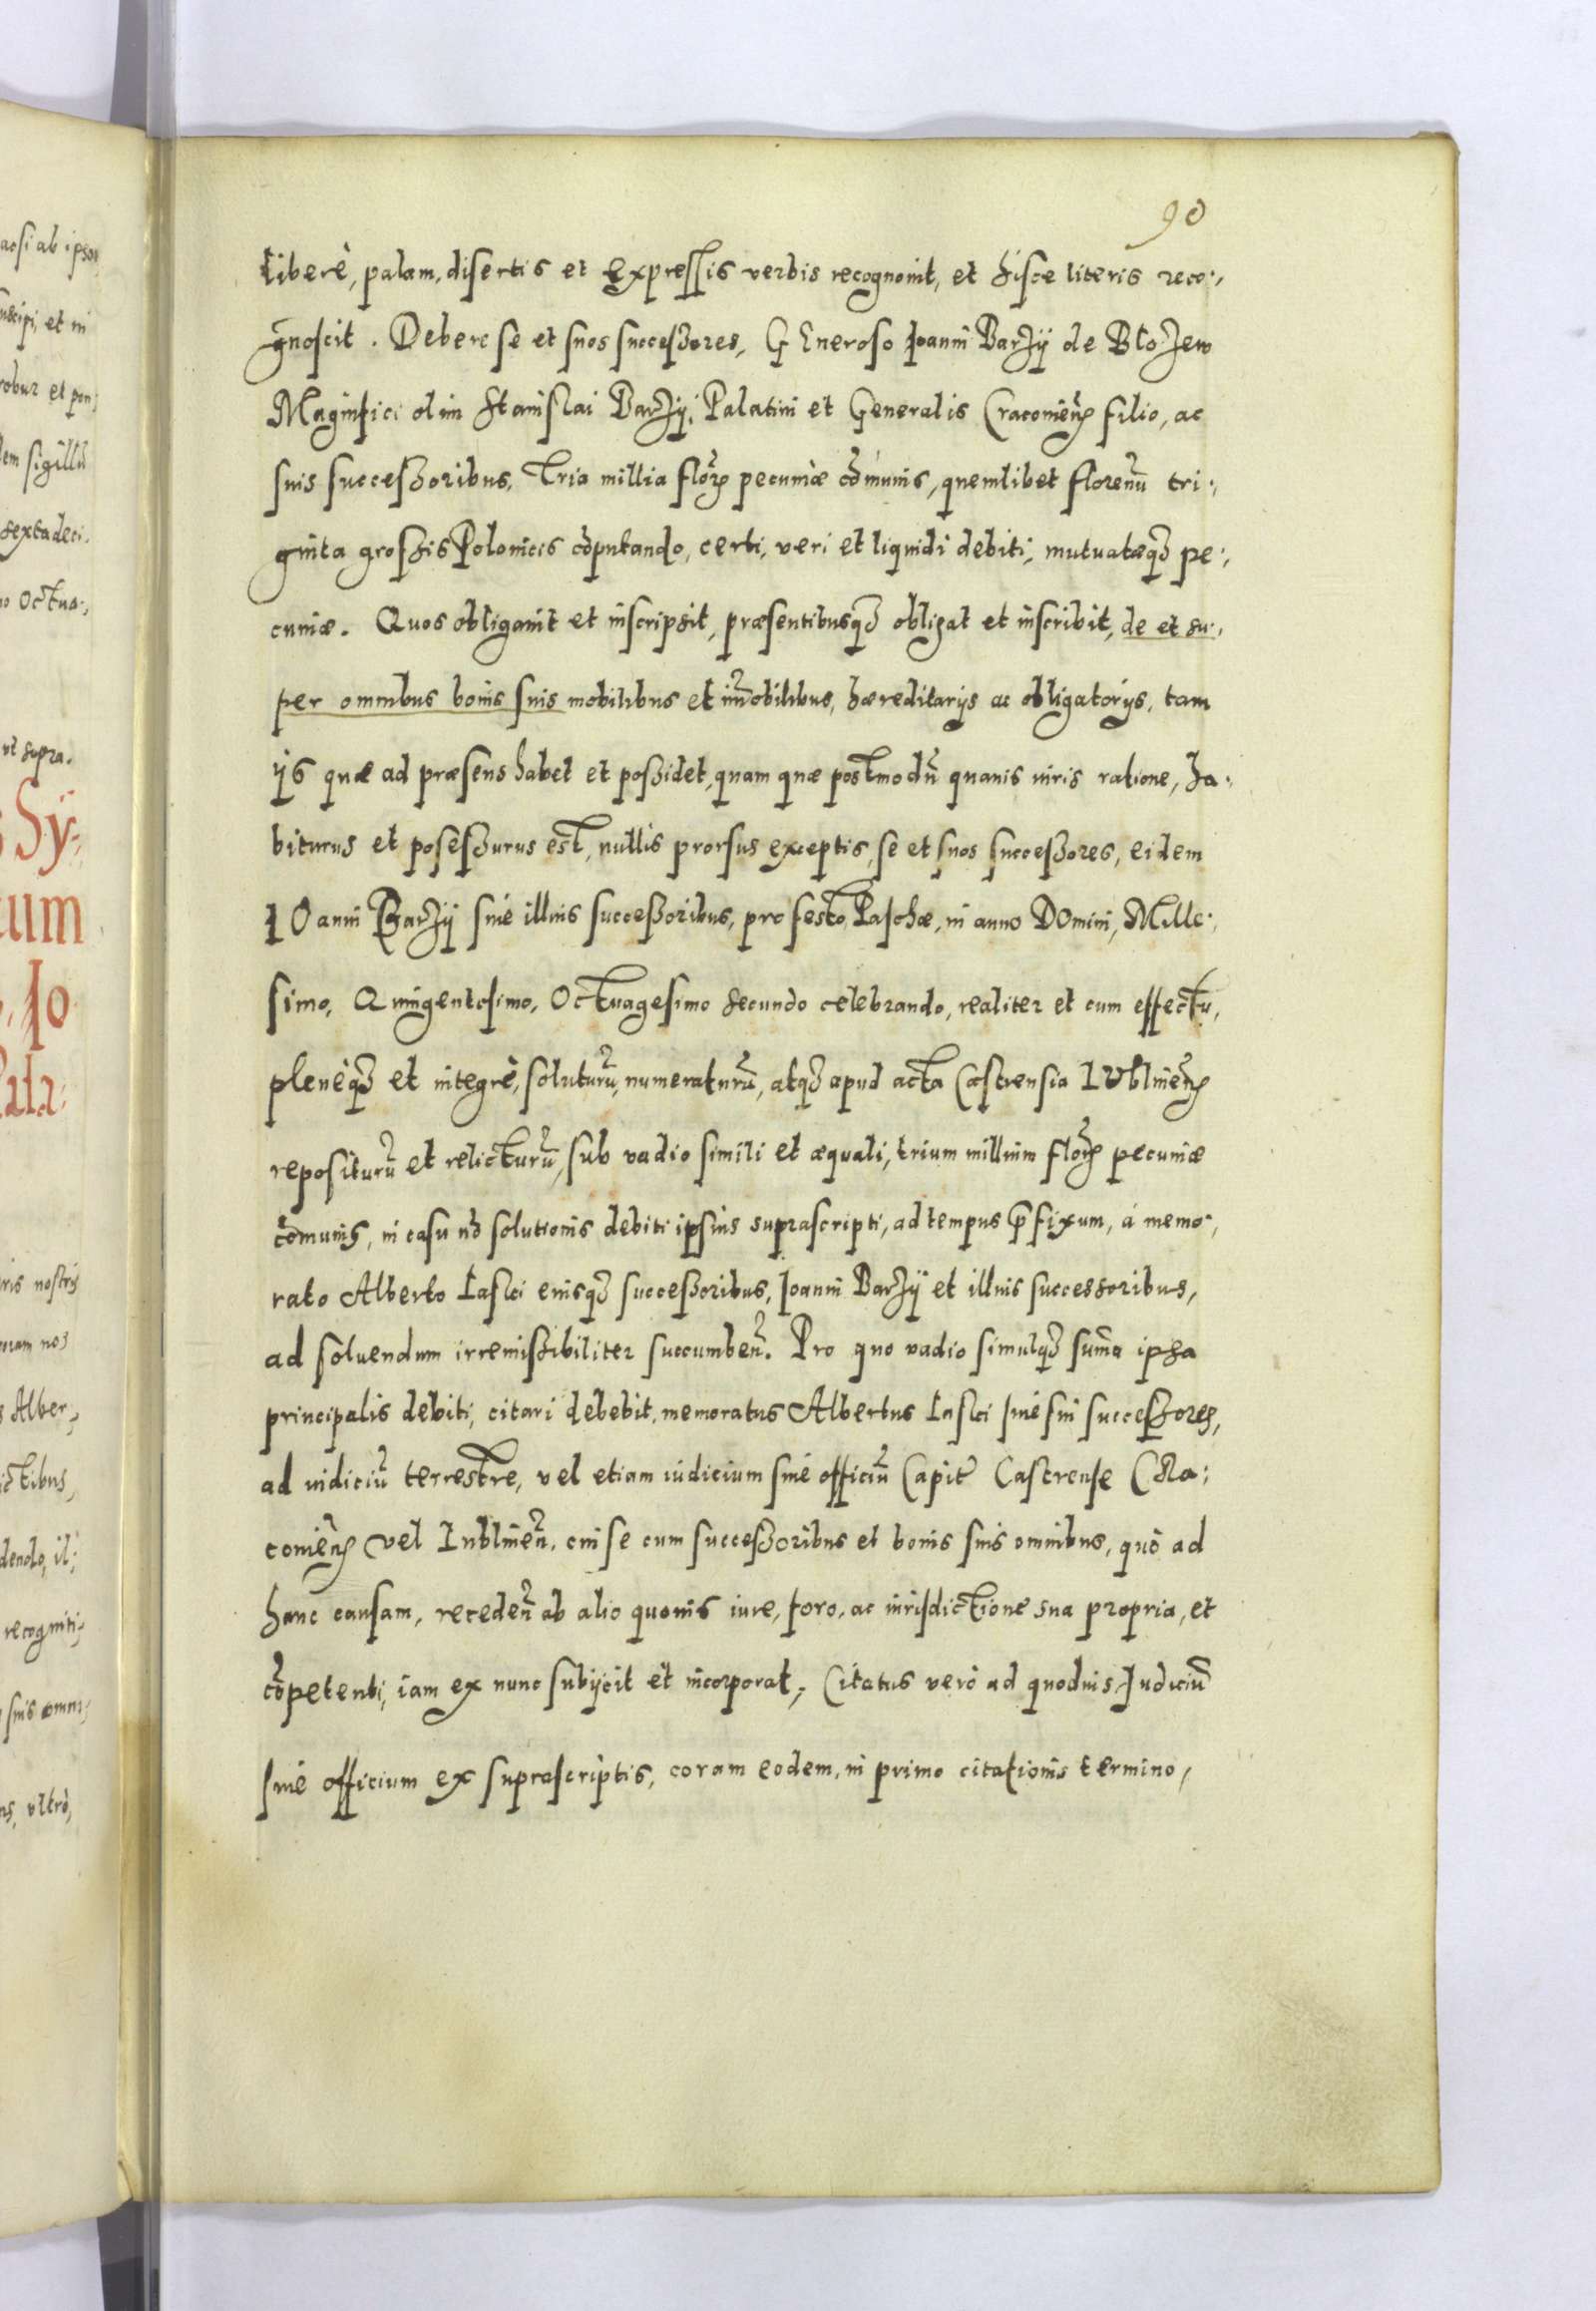 90
liberè, palam, disertis et expressis verbis recognouit, et hisce literis reco:,
gnoscit. Debere se et suos successores, GEneroso Ioanni Barzÿ de Błozew
Magnifici olim Stanislai Barzÿ, Palatini et Generalis Cracouień filio, ac
suis successoribus, Tria millia floꝝ pecuniæ cõmunis, quemlibet florenũ tri:,
ginta grossis Polonicis cõputando, certi, veri et liquidi debiti, mutuatæqꝫ pe:,
cuniæ. Quos obligauit et inscripsit, præsentibusqꝫ obligat et inscribit, de et su:,
per omnibus bonis suis mobilibus et im̃obilibus, hæreditarÿs ac obligatorÿs, tam
ÿs quæ ad præsens habet et possidet, quam quæ postmodũ quauis iuris ratione, ha:
biturus et posessurus est, nullis prorsus exceptis, se et suos successores, eidem
IOanni Barzÿ siue illius successoribus, pro festo Paschæ, in anno DOmini, Mille:
simo, Quingentesimo, Octuagesimo secundo celebrando, realiter et cum effectu,
plenèqꝫ et integrè, soluturũ, numeraturũ, atqꝫ apud acta Castrensia LUblineñ
repositurũ et relicturũ, sub vadio simili et æquali, trium millium floꝝ pecuniæ
cõmunis, in casu nõ solutionis debiti ipsius suprascripti, ad tempus p̃fixum, á memo:,
rato Alberto Łaski eiusqꝫ successoribus, Ioanni Barzÿ et illius successoribus,
ad soluendum irremissibiliter succumbeñ. Pro quo vadio simulqꝫ sum̃a ipsa
principalis debiti, citari debebit, memoratus Albertus Łaski siue sui successores,
ad iudiciũ terrestre, vel etiam iudicium siue officiũ Capit̃ Castrense CRa:
couieñ vel Lublineñ, cui se cum successoribus et bonis suis omnibus, quò ad
hanc causam, recedeñ ab alio quouis iure, foro, ac iurisdictione sua propria, et
cõpetenti, iam ex nunc subÿcit et incorporat, Citatus verò ad quoduis Judiciũ
siue officium ex suprascriptis, coram eodem, in primo citationis termino,